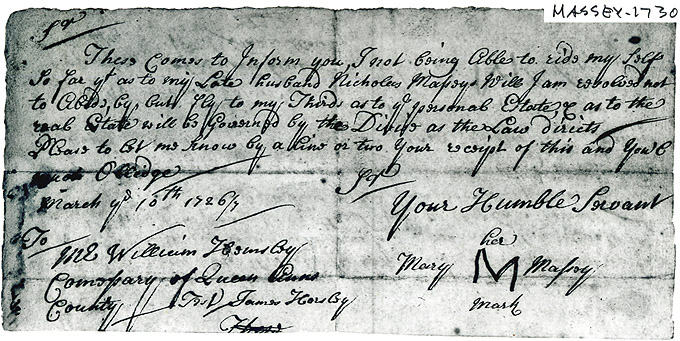 MASSEY-1730
Sr
These Comes to Inform you, I not being Able to ride my Self
So far yt as to my Late husband Nicholas Masseys Will I am resolved not
to Abide by, but fly to my Thirds as to ye personal Estate & as to the
real Estate will be Governed by the Devise as the Law directs
Please to let me Know by a Line or two Your receipt of this and You'l
much Oblidge Sr
March ye 10th 1726/7 Your Humble Servant
To her
Mr William Hemsley Mary M Massey
Comessary of Queen Anns mark
County Test James Horsley
These